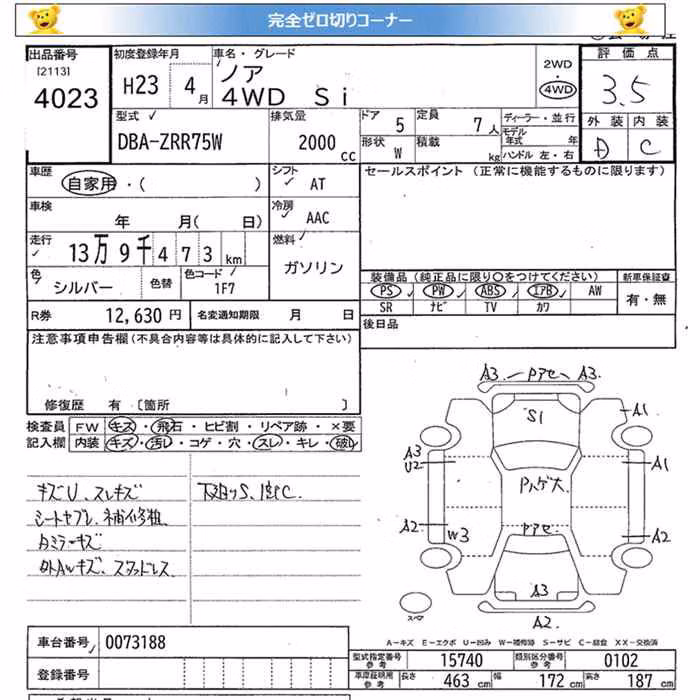 完全ゼロ切りコーナー
出品番号
[2113]
4023
初度登録年月
H23 4月
車名・グレード
ノア
4WD Si
2WD
4WD
評価点
3.5
外装 内装
D C
型式
DBA-ZRR75W
排気量
2000 cc
ドア 5
定員 7人
形状 W
積載 kg
ディーラー・並行
モデル年式 年
ハンドル 左・右
車歴
自家用・( )
シフト AT
車検
年 月( 日)
冷房 AAC
走行
13万9千473km
燃料
ガソリン
色
シルバー
色替
色コード
1F7
R券 12,630円
名変通知期限 月 日
セールスポイント(正常に機能するものに限ります)
装備品(純正品に限り○をつけてください)
新車保証書
PS PW ABS エアB AW
SR ナビ TV カワ
有・無
後日品
注意事項申告欄(不具合内容等は具体的に記入して下さい)
修復歴 有 [箇所 ]
検査員記入欄
FW キズ・飛石・ヒビ割・リペア跡・×要
内装 キズ・汚れ・コゲ・穴・スレ・キレ・破れ
キズU、スレキズ
下廻りS、
シートヤブレ、補修粗
カミラーキズ
外AWキズ、スタッドレス
A3 Pアセ A3
S1
A1
A3
U2
A1
Pハゲ大
A2
W3
Pアセ
A2
A3
スペア
A2
A-キズ E-エクボ U-凹み W-補修跡 S-サビ C-腐食 XX-交換済
車台番号 0073188
登録番号
型式指定番号参考 15740
類別区分番号参考 0102
車庫証明用参考
長さ 463cm 幅 172cm 高さ 187cm